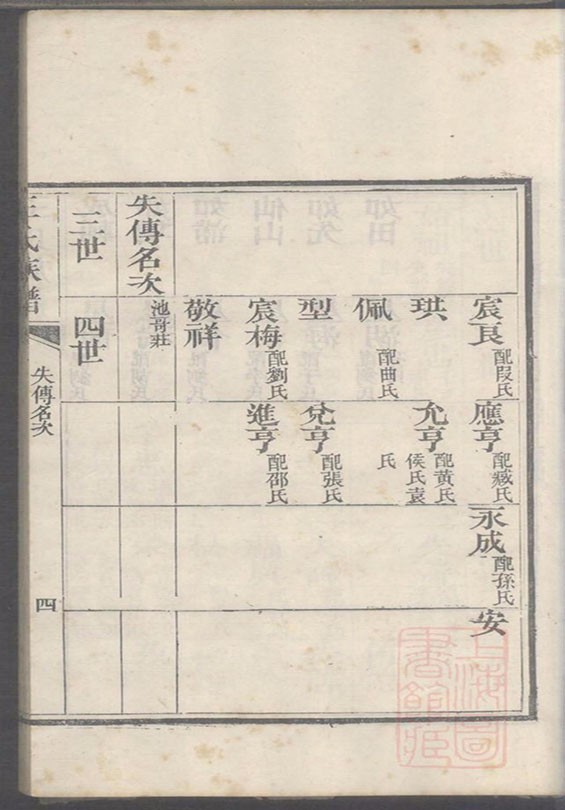 宸良 配段氏
應亨 配臧氏
永成 配孫氏
安
珙
允亨 配黃氏
侯氏袁
氏
佩 配曲氏
型
兌亨 配張氏
宸梅 配劉氏
進亨 配邵氏
敬祥
失傳名次
池哥莊
三世
四世
王氏族譜
失傳名次
四
上海圖
書館藏